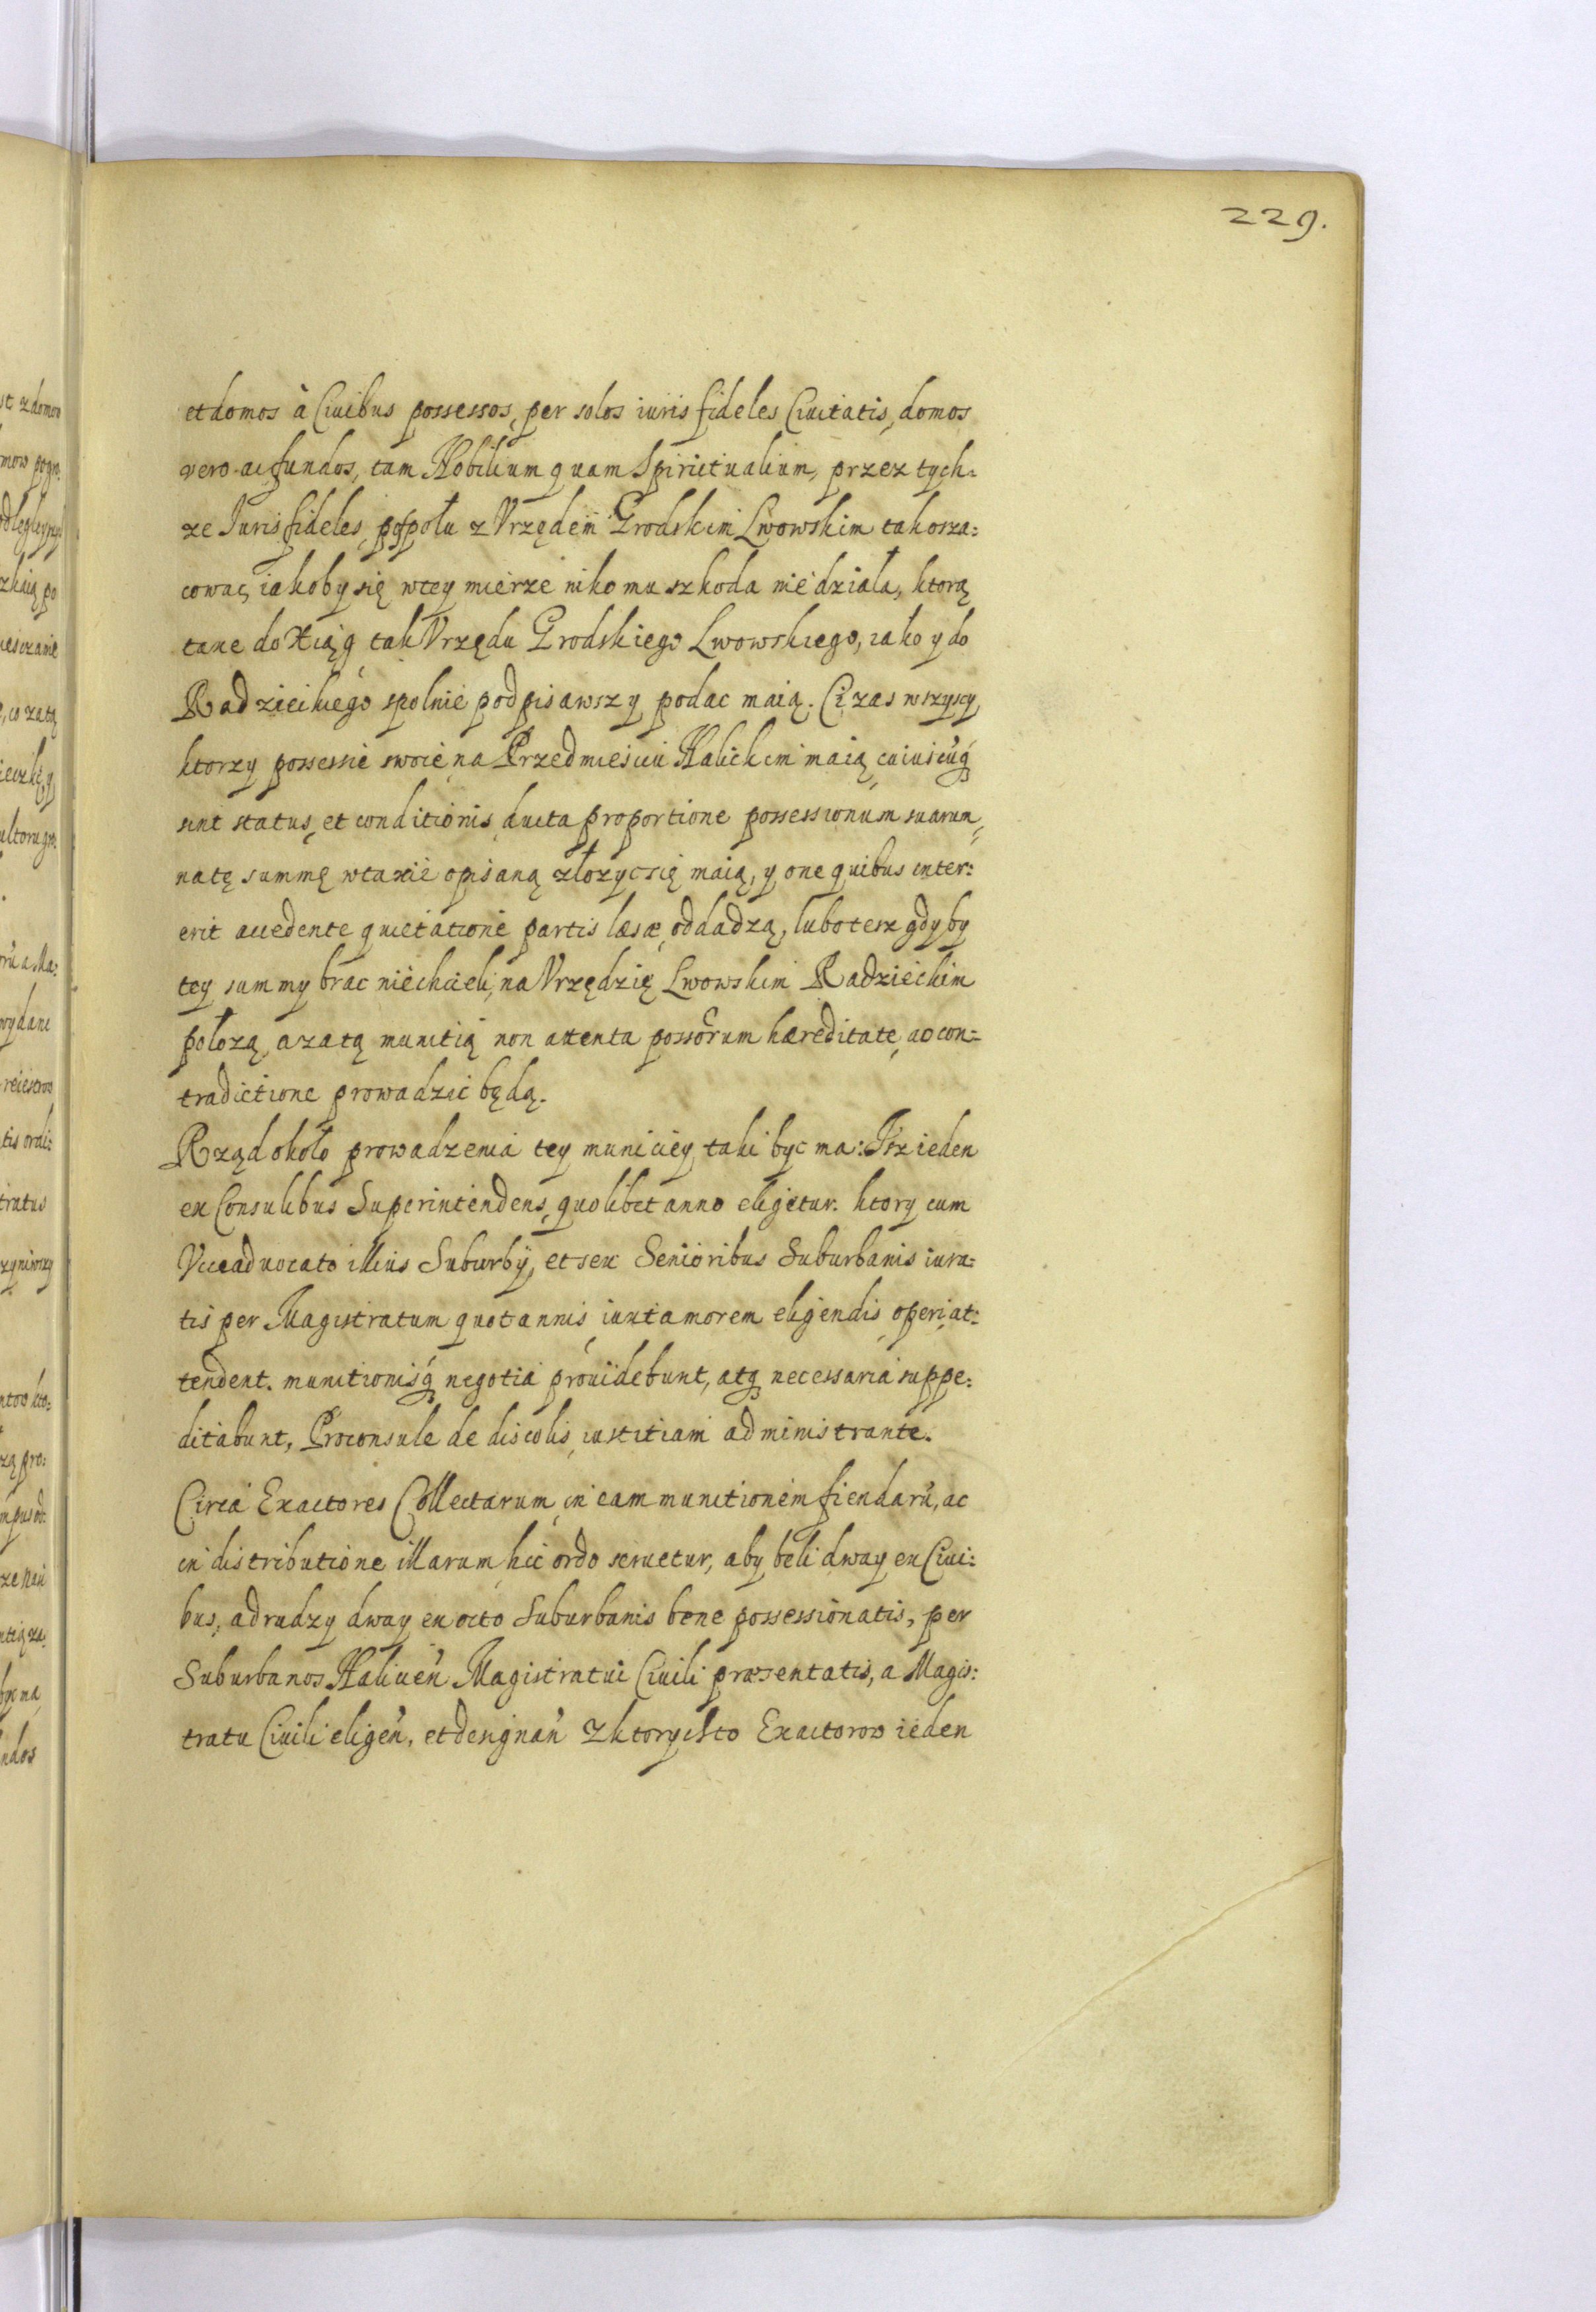 229.
et domos à Ciuibus possessos, per solos iuris fideles Ciuitatis, domos
vero ac fundos, tam Nobilium quam Spiritualium, przez tych=
ze Iuris fideles, pospołu z Vrzędem Grodskim Lwowskim tak osza=
cowac, iakoby się wtey mierze nikomu szkoda nie działa, ktorą
taxe do Xiąg tak Vrzędu Grodskiego Lwowskiego, iako y do
Radzieckiego spolnie podpisawszy podac maią. Ci zas wszyscy,
ktorzy possessie swoie na Przedmiesciu Halickim maią, cuiuscuq́
sint status, et conditionis, ducta proportione possessionum suarum,
na tę summę w taxie opisaną złozyc się maią, y one quibus inter=
erit accedente quietatione partis læsæ, oddadzą, lubo tesz gdyby
tey summy brac niechcieli, na Vrzędzię Lwowskim Radzieckim
połozą, a zatą munitią non attenta possorum hæreditate, ac con=
tradictione prowadzic będą.
Rząd około prowadzenia tey municiey, taki byc ma: Isz ieden
ex Consulibus Superintendens, quolibet anno eligetur. ktory cum
Viceaduocato illius Suburbÿ, et sex Senioribus Suburbanis iura=
tis per Magistratum quotannis, iuxta morem eligendis, operi at=
tendent. munitionisq́ negotia prouidebunt, atq necessaria suppe=
ditabunt, Proconsule de discolis, iustitiam administrante.
Circa Exactores Collectarum, in eam munitionem fiendarū, ac
in distributione illarum, hic ordo seruetur, aby beli dway ex Ciui=
bus, a drudzy dway ex octo Suburbanis bene possessionatis, per
Suburbanos Halicen̄ Magistratui Ciuili præsentatis, a Magis=
tratu Ciuili eligen̄, et designan̄ Z ktorych to Exactorow ieden